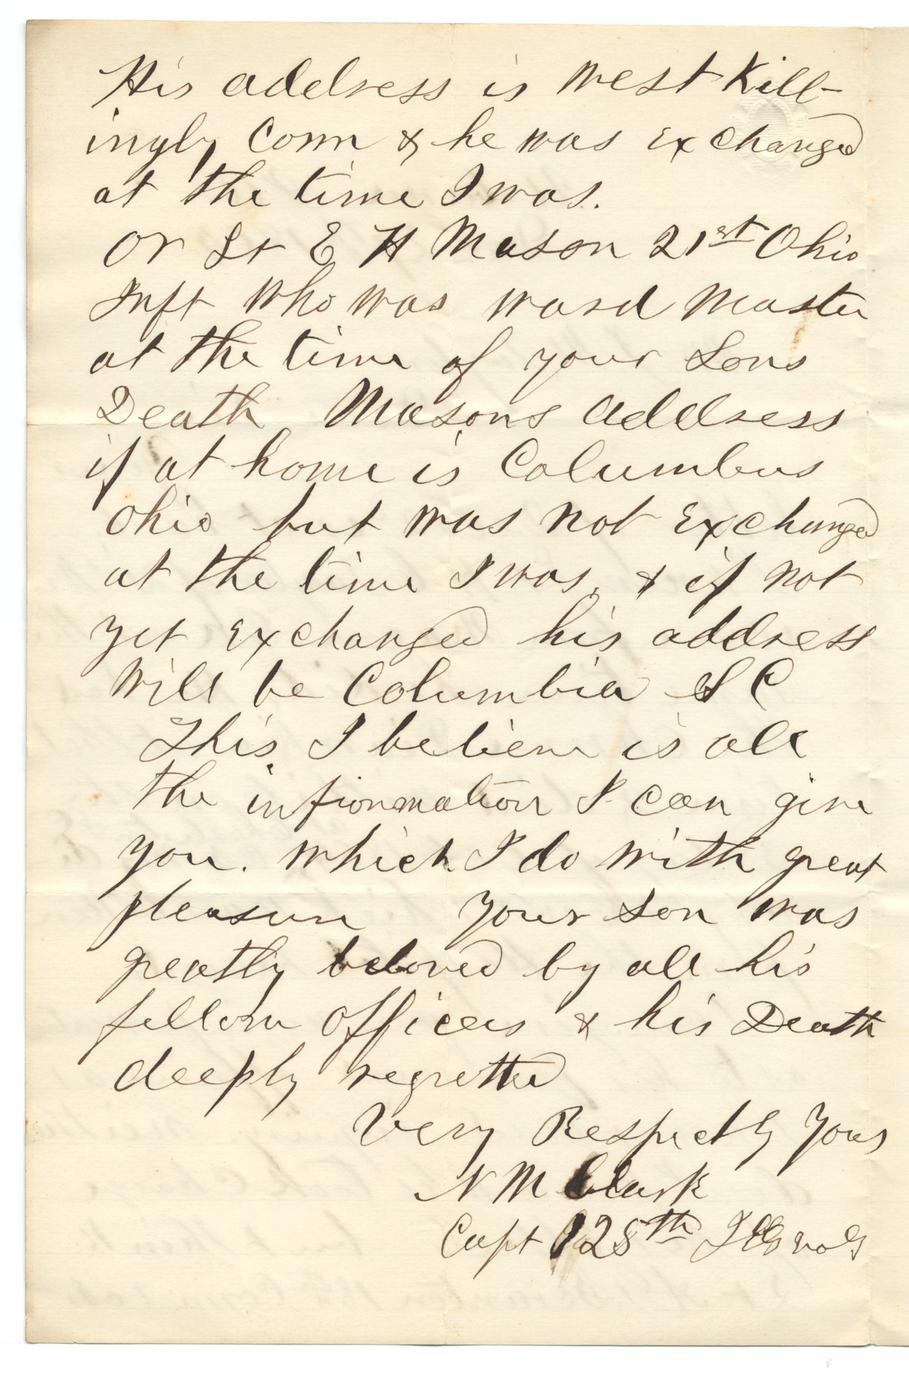 His address is West Kill-
ingly Conn & he was exchanged
at the time I was.
Or Lt E H Mason 21st Ohio
Inft who was ward Master
at the time of your Sons
Death Masons address
if at home is Columbus
Ohio but was not Exchanged
at the time I was, & if not
yet exchanged his address
will be Columbia S C
This I believe is all
the infionmation I can give
you. which I do with great
pleasure your son was
greatly beloved by all his
fellow officers & his Death
deeply regretted
Very Respectly Yours
N M Clark
Capt 125th Ills Vols